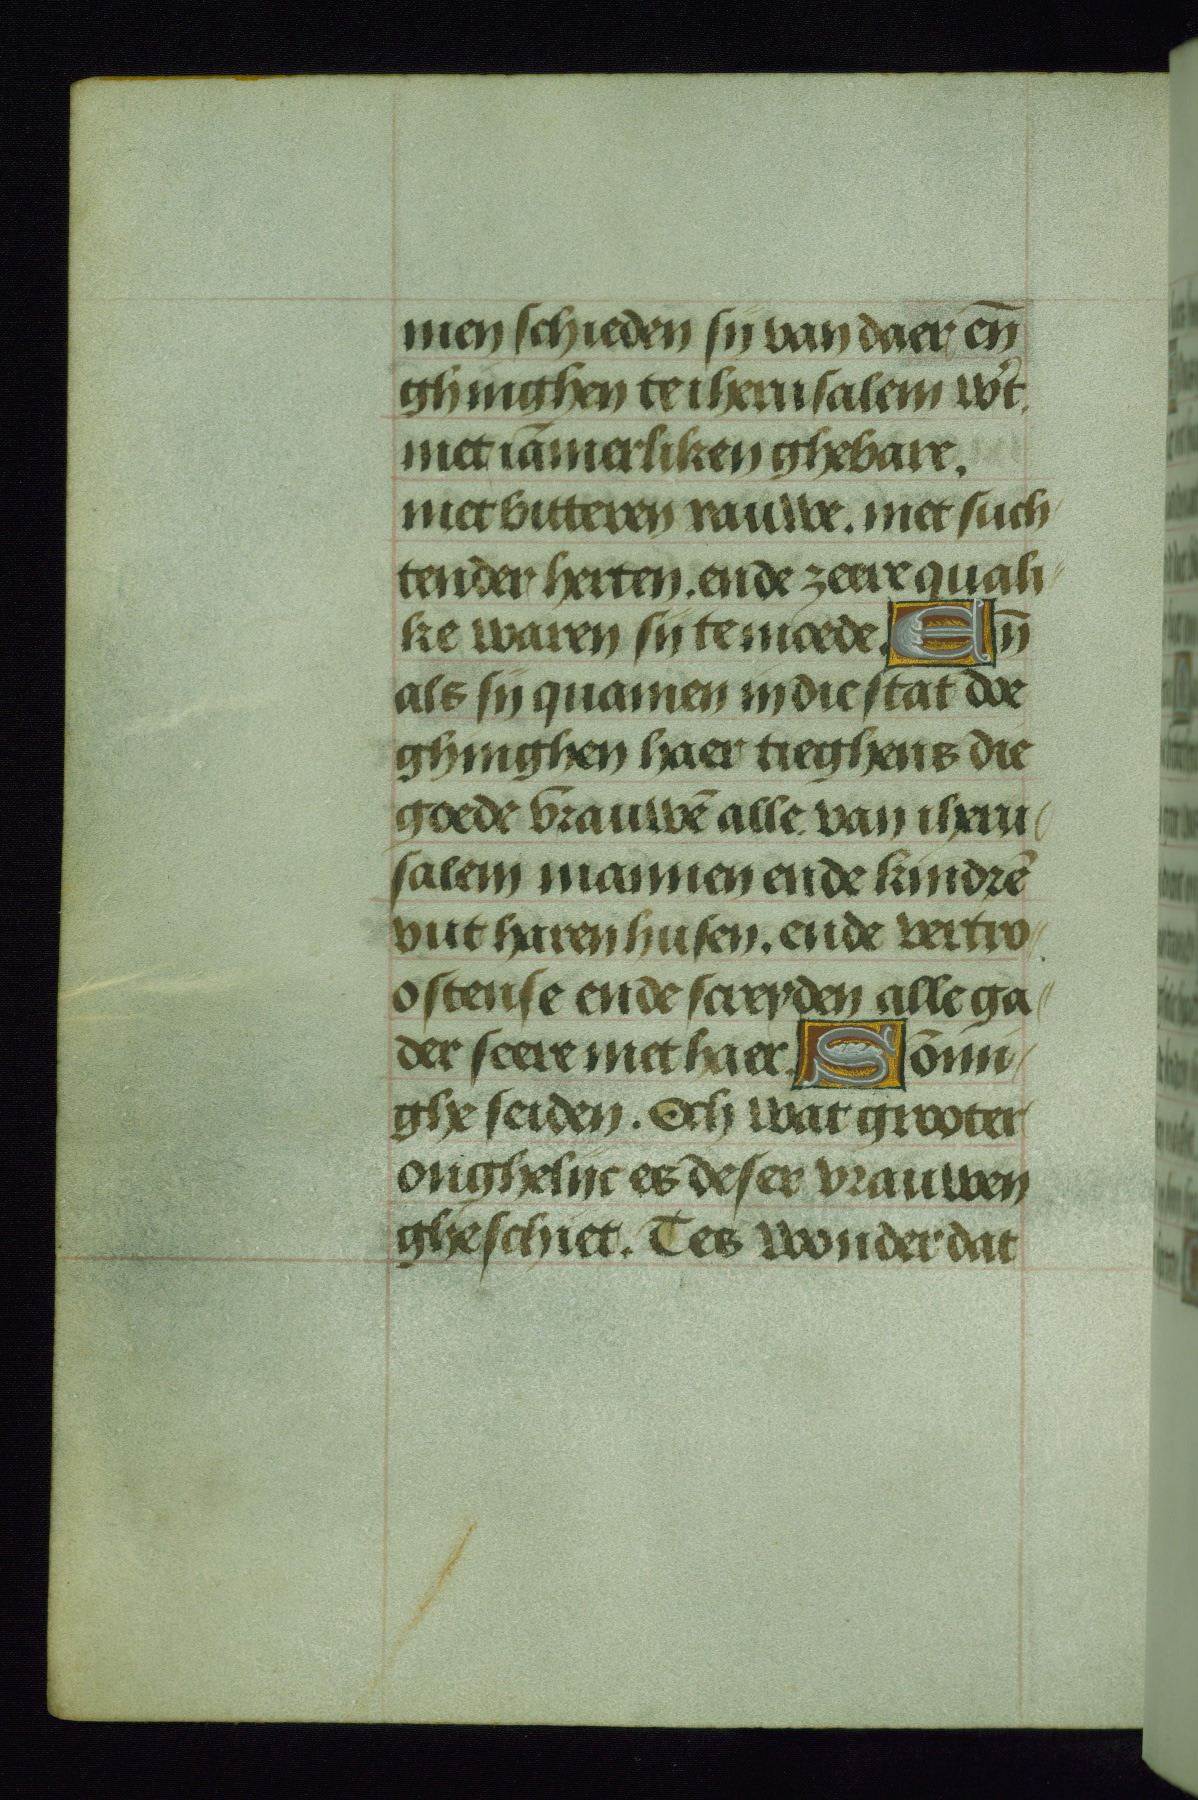 men schieden sij van daer en̄
ghinghen te iherusalem w̄t.
met iāmerliken ghebare.
met bitteren rauwe. met such
tender herten. ende zeere quali
ke waren sij te moede. En̄
als sij quamen in die stat doe
ghinghen haer tieghens die
goede vrauwē alle van iheru
salem mannen ende kindrē
vut haren husen. ende vertro
ostense ende screyden alle ga
der seere met haer. Sōmi
ghe seiden. Och wat grooter
onghelijc es deser vrauwen
gheschiet. Tes wonder dat